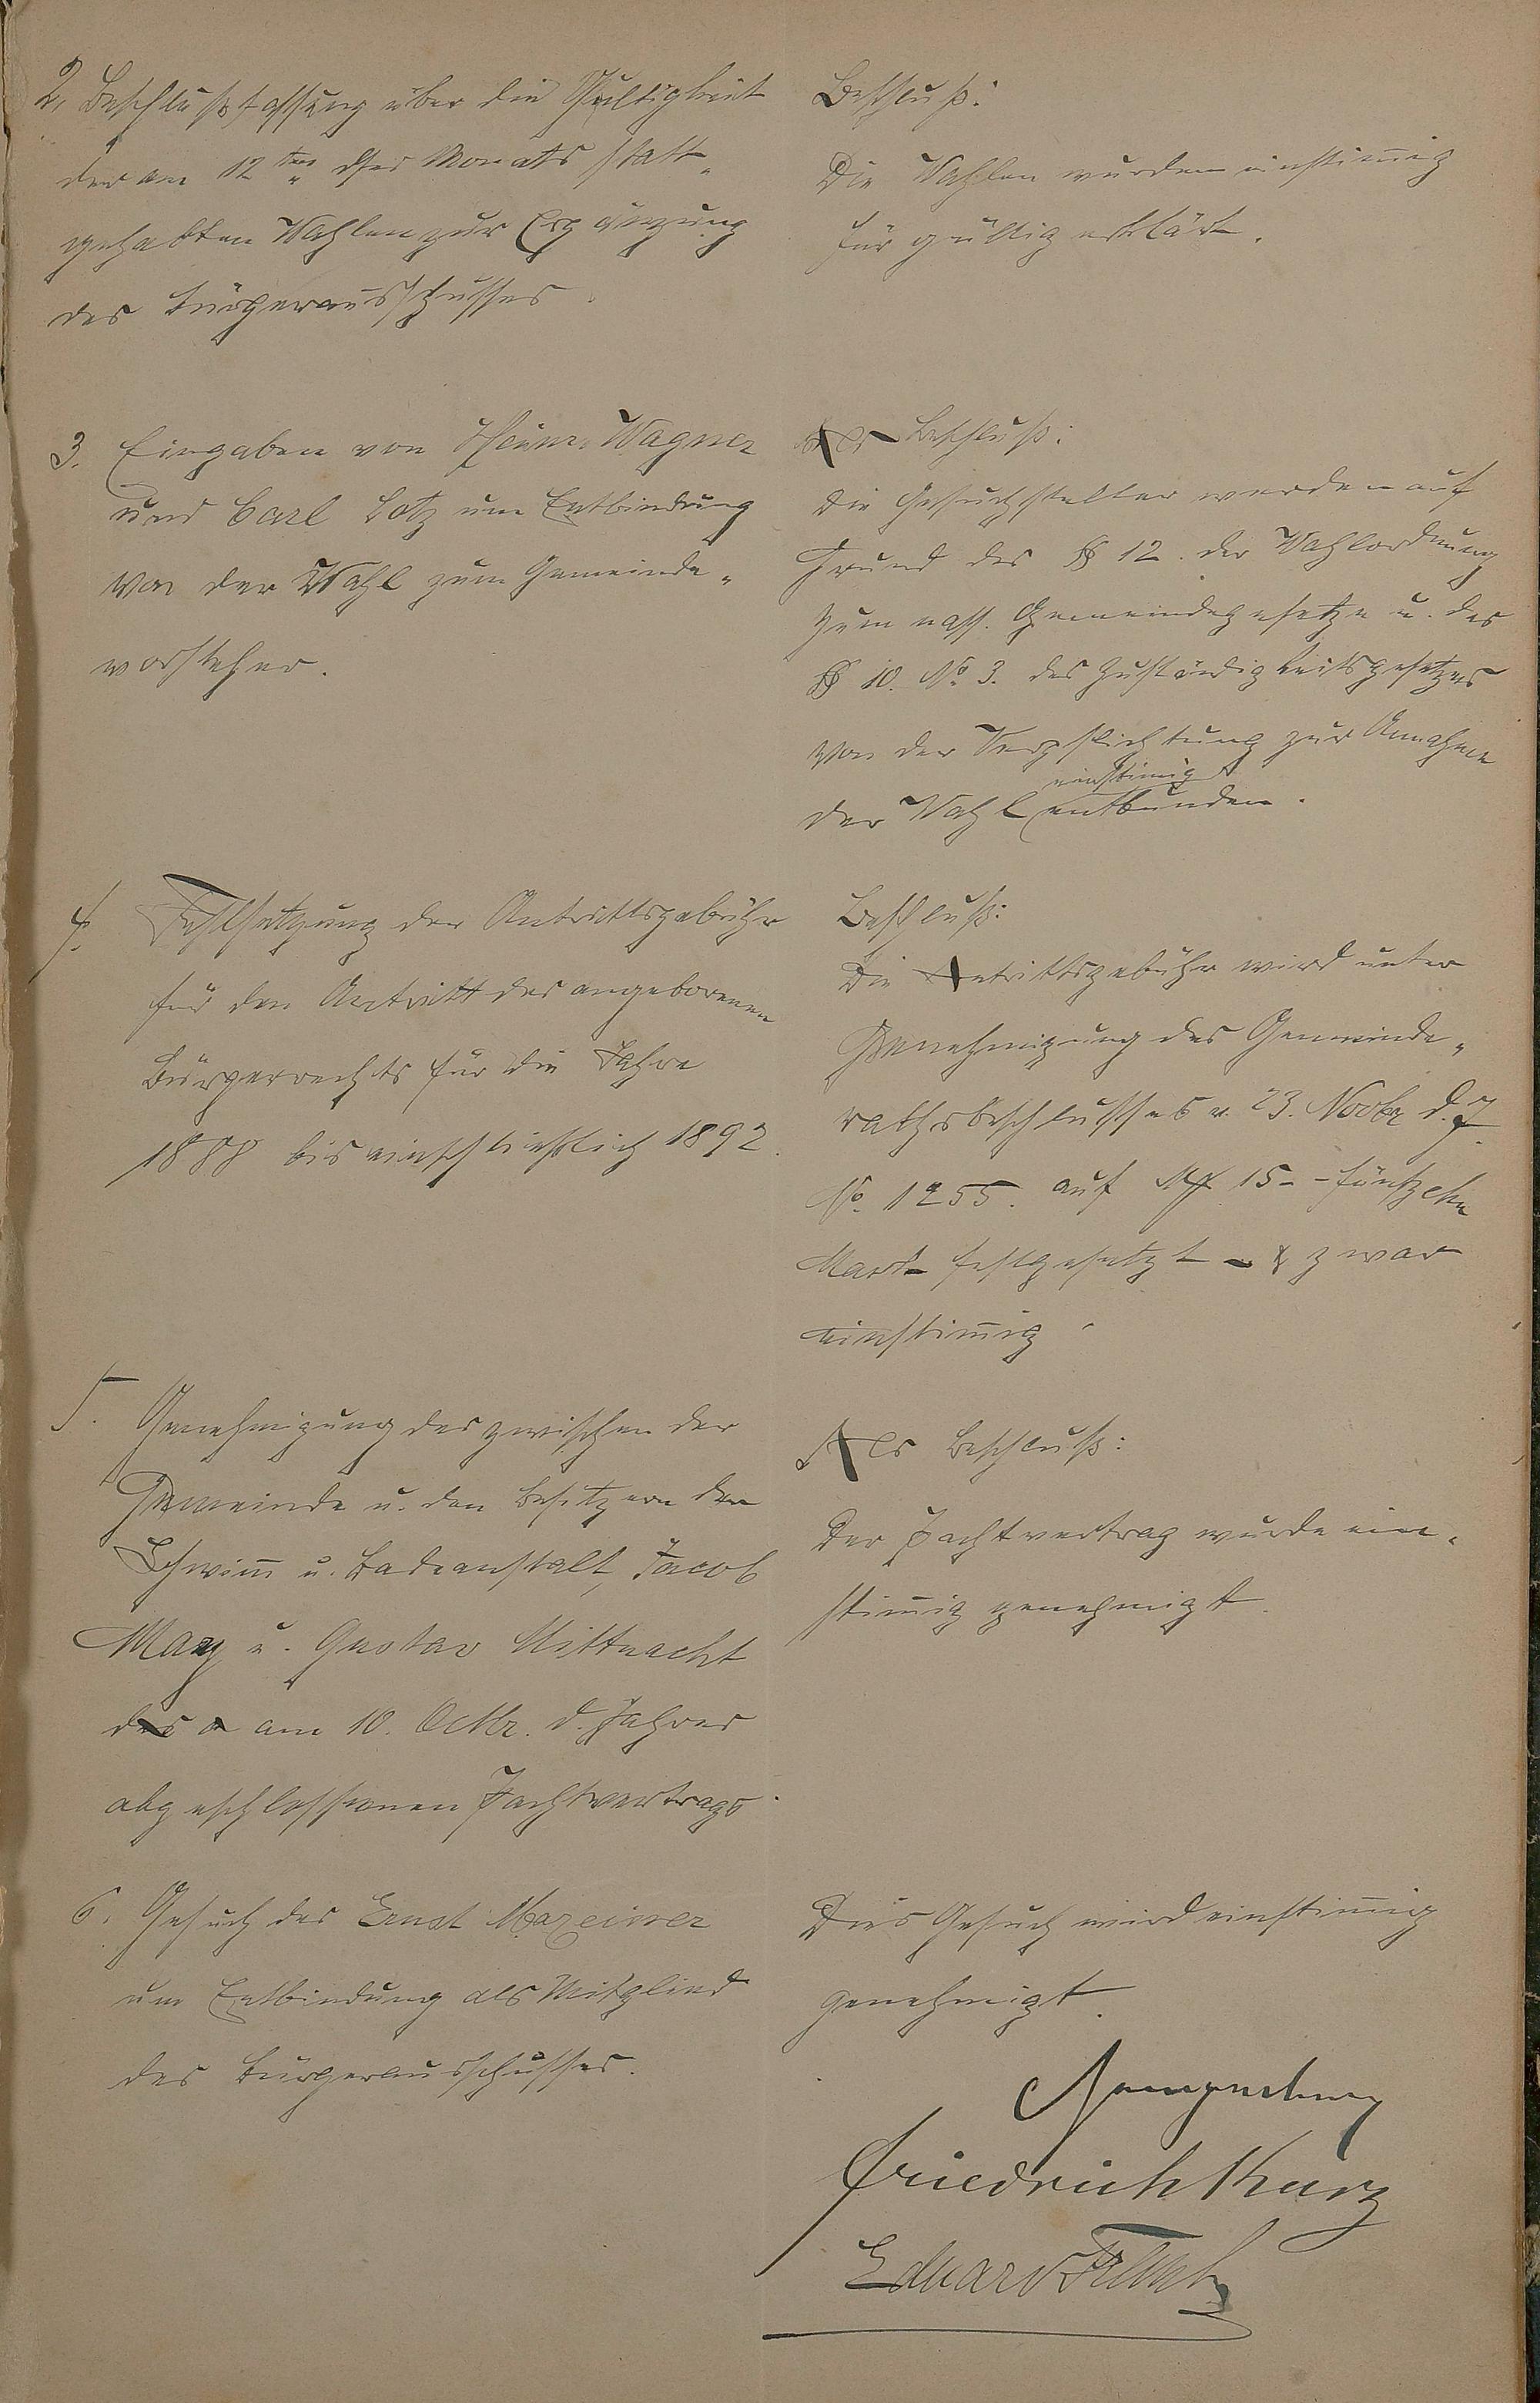 2. Beschlußfassung über die Gültigkeit
der am 12ten dses Monats statt-
gehabten Wahlen zur Ergänzung
des Bürgerausschusses.
Beschluß:
Die Wahlen wurden einstimmig
für gültig erklärt.
3. Eingaben von Heinr. Wagner
und Carl Lotz um Entbindung
von der Wahl zum Gemeinde-
vorsteher.
Beschluß:
Die Gesuchsteller werden auf
Grund des § 12. der Wahlordnung
zum nass. Gemeindegesetze u. des
§ 10. No 3. des Zuständigkeitsgesetzes
von der Verpflichtung zur Annahme
der Wahl einstimmig entbunden.
4. Festsetzung der Antrittsgebühr
für den Antritt des angeborenen
Bürgerrechts für die Jahre
1888 bis einschließlich 1892.
Beschluß:
Die Antrittsgebühr wird unter
Genehmigung des Gemeinde-
rathsbeschlusses v. 23. Novbr d. J.
No. 1255. auf M 15 - fünfzehn
Mark festgesetzt - & zwar
einstimmig.
5. Genehmigung des zwischen der
Gemeinde u. den Besitzern der
Schwimm u. Badeanstalt, Jacob
May u. Gustav Mittnacht
am 10. Octbr. d. Jahres
abgeschlossenen Pachtvertrags.
Beschluß:
Der Pachtvertrag wurde ein-
stimmig genehmigt.
6. Gesuch des Ernst
um Entbindung als Mitglied
des Bürgerausschusses.
Dies Gesuch wird einstimmig
genehmigt.
Friedrich Kurz
Eduard